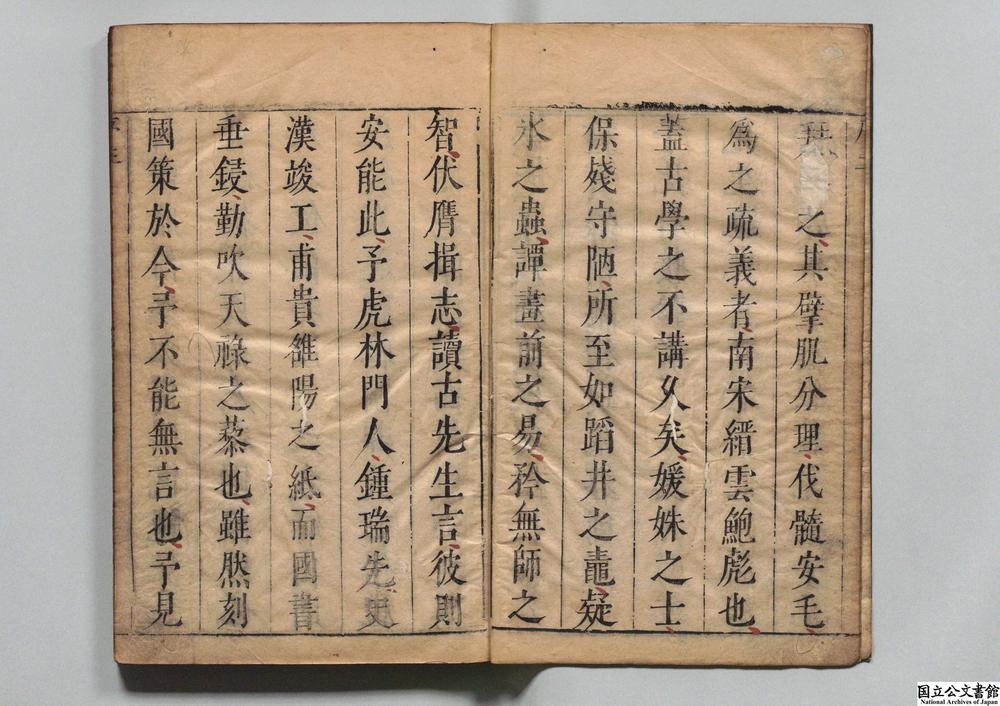 之其擘肌分理伐髓安毛
為之疏義者南宋縉雲鮑彪也
蓋古學之不講久矣媛姝之士
保殘守陋所至如蹈井之鼃疑
氷之蟲譚畫前之易矜無師之
智伏膺揖志讀古先生言彼則
安能此予虎林門人鍾瑞先史
漢竣工甫貴雒陽之紙而國書
垂鋟勤吹天祿之藜也雖然刻
國策於今予不能無言也予見
国立公文書館
National Archives of Japan